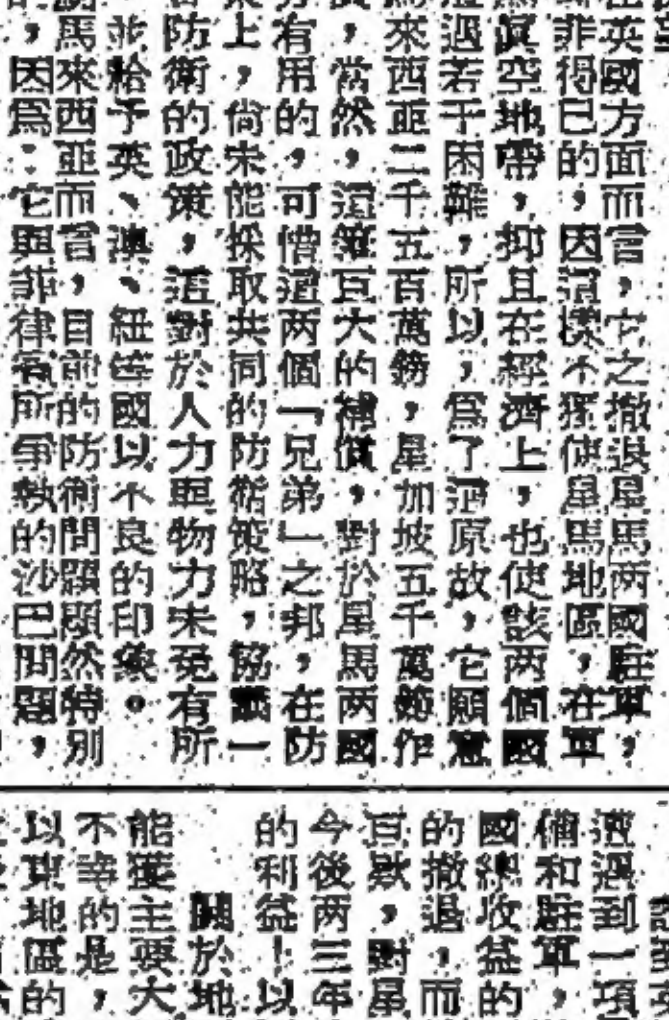 英國方面而言，它之撤退星馬两國駐軍，
非得已的，因這樣不獨使星馬地區，在軍
眞空地帶，抑且在經濟上，也使該两個國
遇若干困難，所以，爲了這原故，它願意
來西亞二千五百萬鎊，星加坡五千萬鎊作
，當然，這筆巨大的補償，對於星馬两國
有用的，可惜這两個「兄弟」之邦，在防
上，尚未能採取共同的防衛策略，協議一
防衛的政策，這對於人力與物力未免有所
並給予英、澳、紐等國以不良的印象。
馬來西亞而言，目前的防衛問題顯然特別
，因爲：它與菲律賓所爭執的沙巴問題，
遭遇到一項
備和駐軍，
國總收益的
的撤退，而
，對星
今後两三年
的利益！以
關於地
能獲主要大
不幸的是，
以東地區的